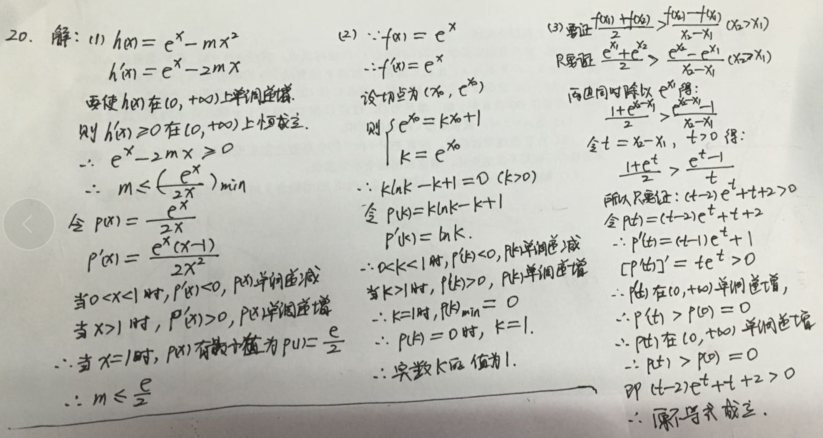 20. 解:(1) h(x) = e^x - mx²
h'(x) = e^x - 2mx
要使h(x)在(0, +∞)上单调递增.
则 h'(x) ≥ 0 在(0, +∞)上恒成立.
∴ e^x - 2mx ≥ 0
∴ m ≤ (e^x/2x)min
令 p(x) = e^x/2x
p'(x) = e^x(x-1)/2x²
当 0<x<1 时, p'(x)<0, p(x)单调递减
当 x>1 时, p'(x)>0, p(x)单调递增
∴ 当 x=1时, p(x)有最小值为 p(1) = e/2
∴ m ≤ e/2
(2) ∵ f(x) = e^x
∴ f'(x) = e^x
设切点为 (x₀, e^x₀)
则 { e^x₀ = kx₀+1
k = e^x₀
∴ klnk - k+1 = 0 (k>0)
令 p(k) = klnk - k+1
p'(k) = lnk.
∴ 0<k<1时, p'(k)<0, p(k)单调递减
当 k>1时, p'(k)>0, p(k)单调递增
∴ k=1时, p(k)min = 0
∴ p(k) = 0时, k=1.
∴ 实数k的值为1.
(3) 要证 (f(x₁)+f(x₂))/2 > (f(x₂)-f(x₁))/(x₂-x₁) (x₂>x₁)
只要证 (e^x₁+e^x₂)/2 > (e^x₂-e^x₁)/(x₂-x₁) (x₂>x₁)
两边同时除以 e^x₁ 得:
(1+e^(x₂-x₁))/2 > (e^(x₂-x₁)-1)/(x₂-x₁)
令 t = x₂-x₁, t>0 得:
(1+e^t)/2 > (e^t-1)/t
所以只要证: (t-2)e^t+t+2>0
令 p(t) = (t-2)e^t+t+2
∴ p'(t) = (t-1)e^t+1
[p'(t)]' = te^t>0
∴ p'(t) 在(0,+∞) 单调递增,
∴ p'(t) > p'(0) = 0
∴ p(t) 在(0, +∞) 单调递增
∴ p(t) > p(0) = 0
即 (t-2)e^t+t+2>0
∴ 原不等式成立.